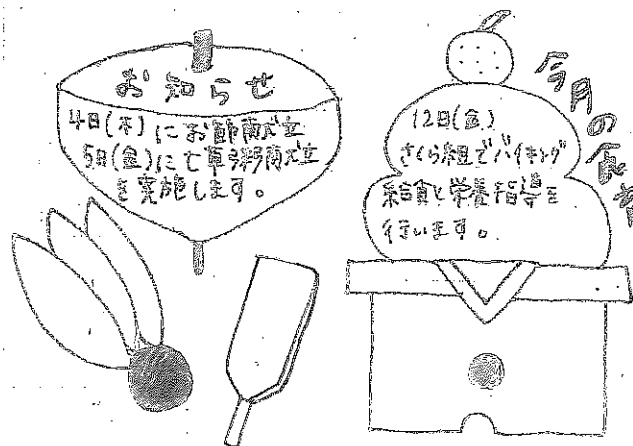 お知らせ
4日(木)にお節献立
5日(金)に七草粥献立
を実施します。
今月の食育
12日(金)
さくら組でバイキング
給食と栄養指導を
行います。